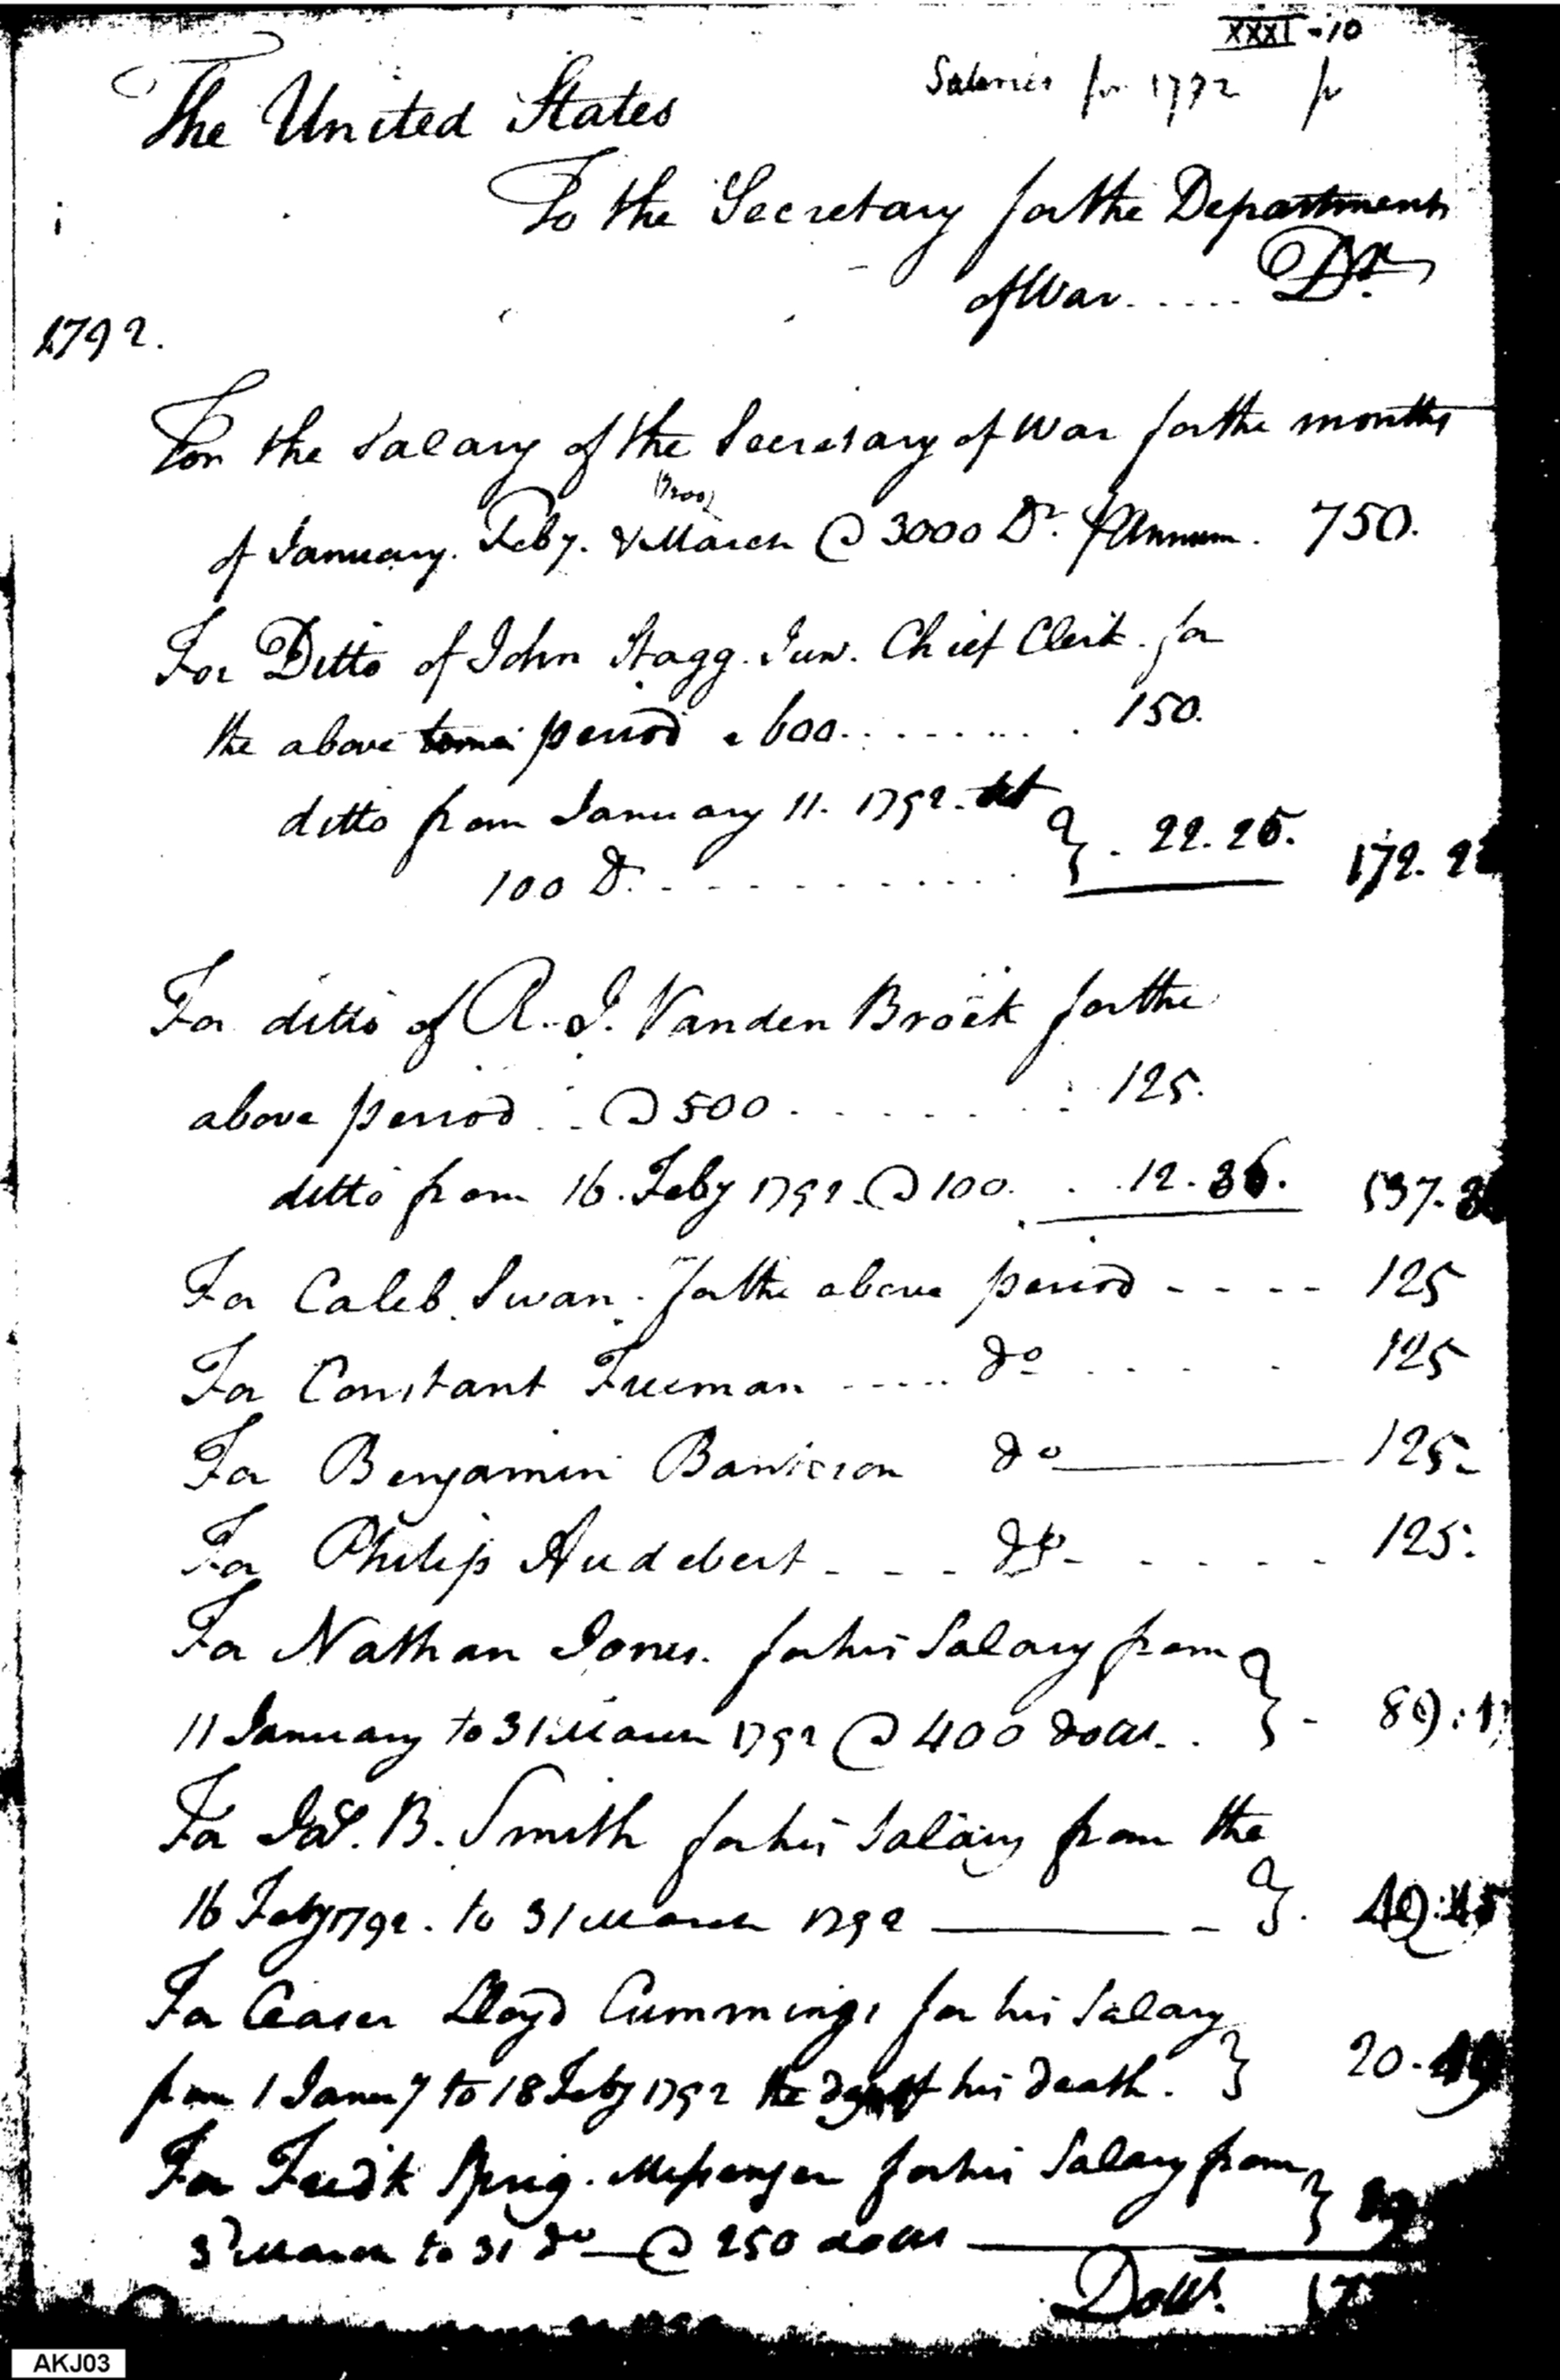 XXXI-10
Salaries for 1792 pr
The United States
To the Secretary for the Department
of War ..... Dr.
1792.
For the Salary of the Secretary of War for the months
of January. Feby. & March @ 3000 Dr. p Annum. 750.
For Ditto of John Stagg. Jun. Chief Clerk. for
the above period @ 600 ......... 150.
ditto from January 11. 1792.
100 D. ............ } . 22.25. 172.2
For ditto of R. J. Vanden Broek for the
above period .. @ 500 ......... 125.
ditto from 16. Feby 1792. @ 100. . . 12.36. 137.3
For Caleb Swan. for the above period - - - - 125
For Constant Freeman ..... do . . . . . 125
For Benjamin Bankson do 125.
For Philip Audebert - - - do - - - - - 125.
For Nathan Jones. for his Salary from
11 January to 31 March 1792 @ 400 dolls. . } - 89:1
For Jas. B. Smith for his Salary from the
16 Feby 1792. to 31 March 1792 - }. 49:45
For Ceaser Lloyd Cummings for his Salary
from 1 Janury to 18 Feby 1792 the day of his death. } 20.
For Fredk Sprig. Messenger for his Salary from
3d March to 31 do @ 250 dolls }
Dolls. 17
AKJ03